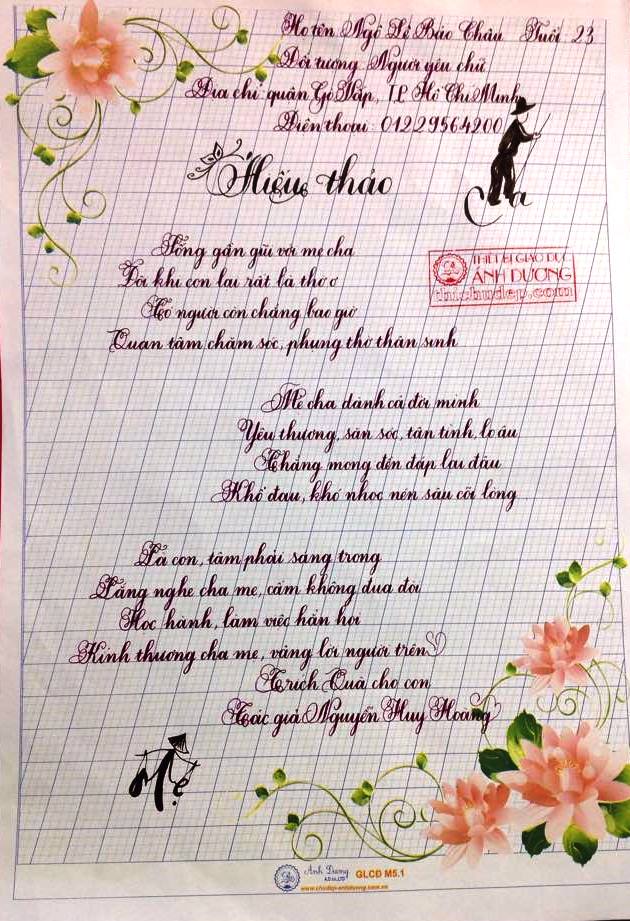 Họ tên Ngô Lê Bảo Châu Tuổi 23
Đối tượng Người yêu chữ
Địa chỉ quận Gò Vấp, TP Hồ Chí Minh
Điện thoại: 01229564200
Hiếu thảo
Cha
THIẾT BỊ GIÁO DỤC
ÁNH DƯƠNG
thichudep.com
Sống gần gũi với mẹ cha
Đôi khi con lại rất là thờ ơ
Có người còn chẳng bao giờ
Quan tâm chăm sóc, phụng thờ thân sinh
Mẹ cha dành cả đời mình
Yêu thương, săn sóc, tận tình, lo âu
Chẳng mong đền đáp lại đâu
Khổ đau, khó nhọc nén sâu cõi lòng
Là con, tâm phải sáng trong
Lắng nghe cha mẹ, cấm không đua đòi
Học hành, làm việc hẳn hoi
Kính thương cha mẹ, vâng lời người trên
Trích Quà cho con
Tác giả Nguyễn Huy Hoàng
Mẹ
Ánh Dương
GLCĐ M5.1
www.chudep-anhduong.com.vn